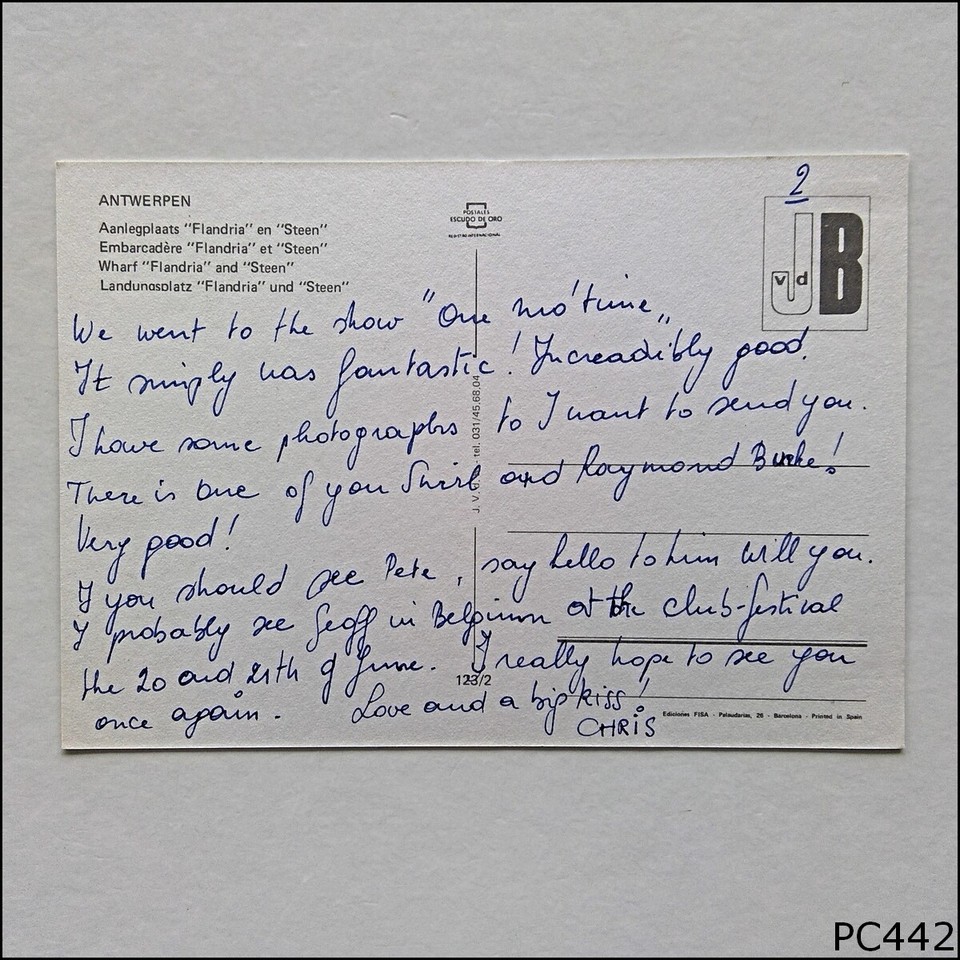 ANTWERPEN
Aanlegplaats "Flandria" en "Steen"
Embarcadère "Flandria" et "Steen"
Wharf "Flandria" and "Steen"
Landungsplatz "Flandria" und "Steen"
POSTALES
ESCUDO DE ORO
REGISTRO INTERNACIONAL
2
JB
vd
We went to the show "One mo'time„
It simply was fantastic! Increadibly good.
I have some photographs to I want to send you.
There is one of you and Raymond Burke!
Very good!
If you should see Pete, say hello to him will you.
I probably see Geoff in Belgium at the club-festival
the 20 and 21th of June. I really hope to see you
once again. Love and a big kiss!
CHRIS
J. V. tel. 031/45.68.04
123/2
Ediciones FISA - Palaudarias, 26 - Barcelona - Printed in Spain
PC442